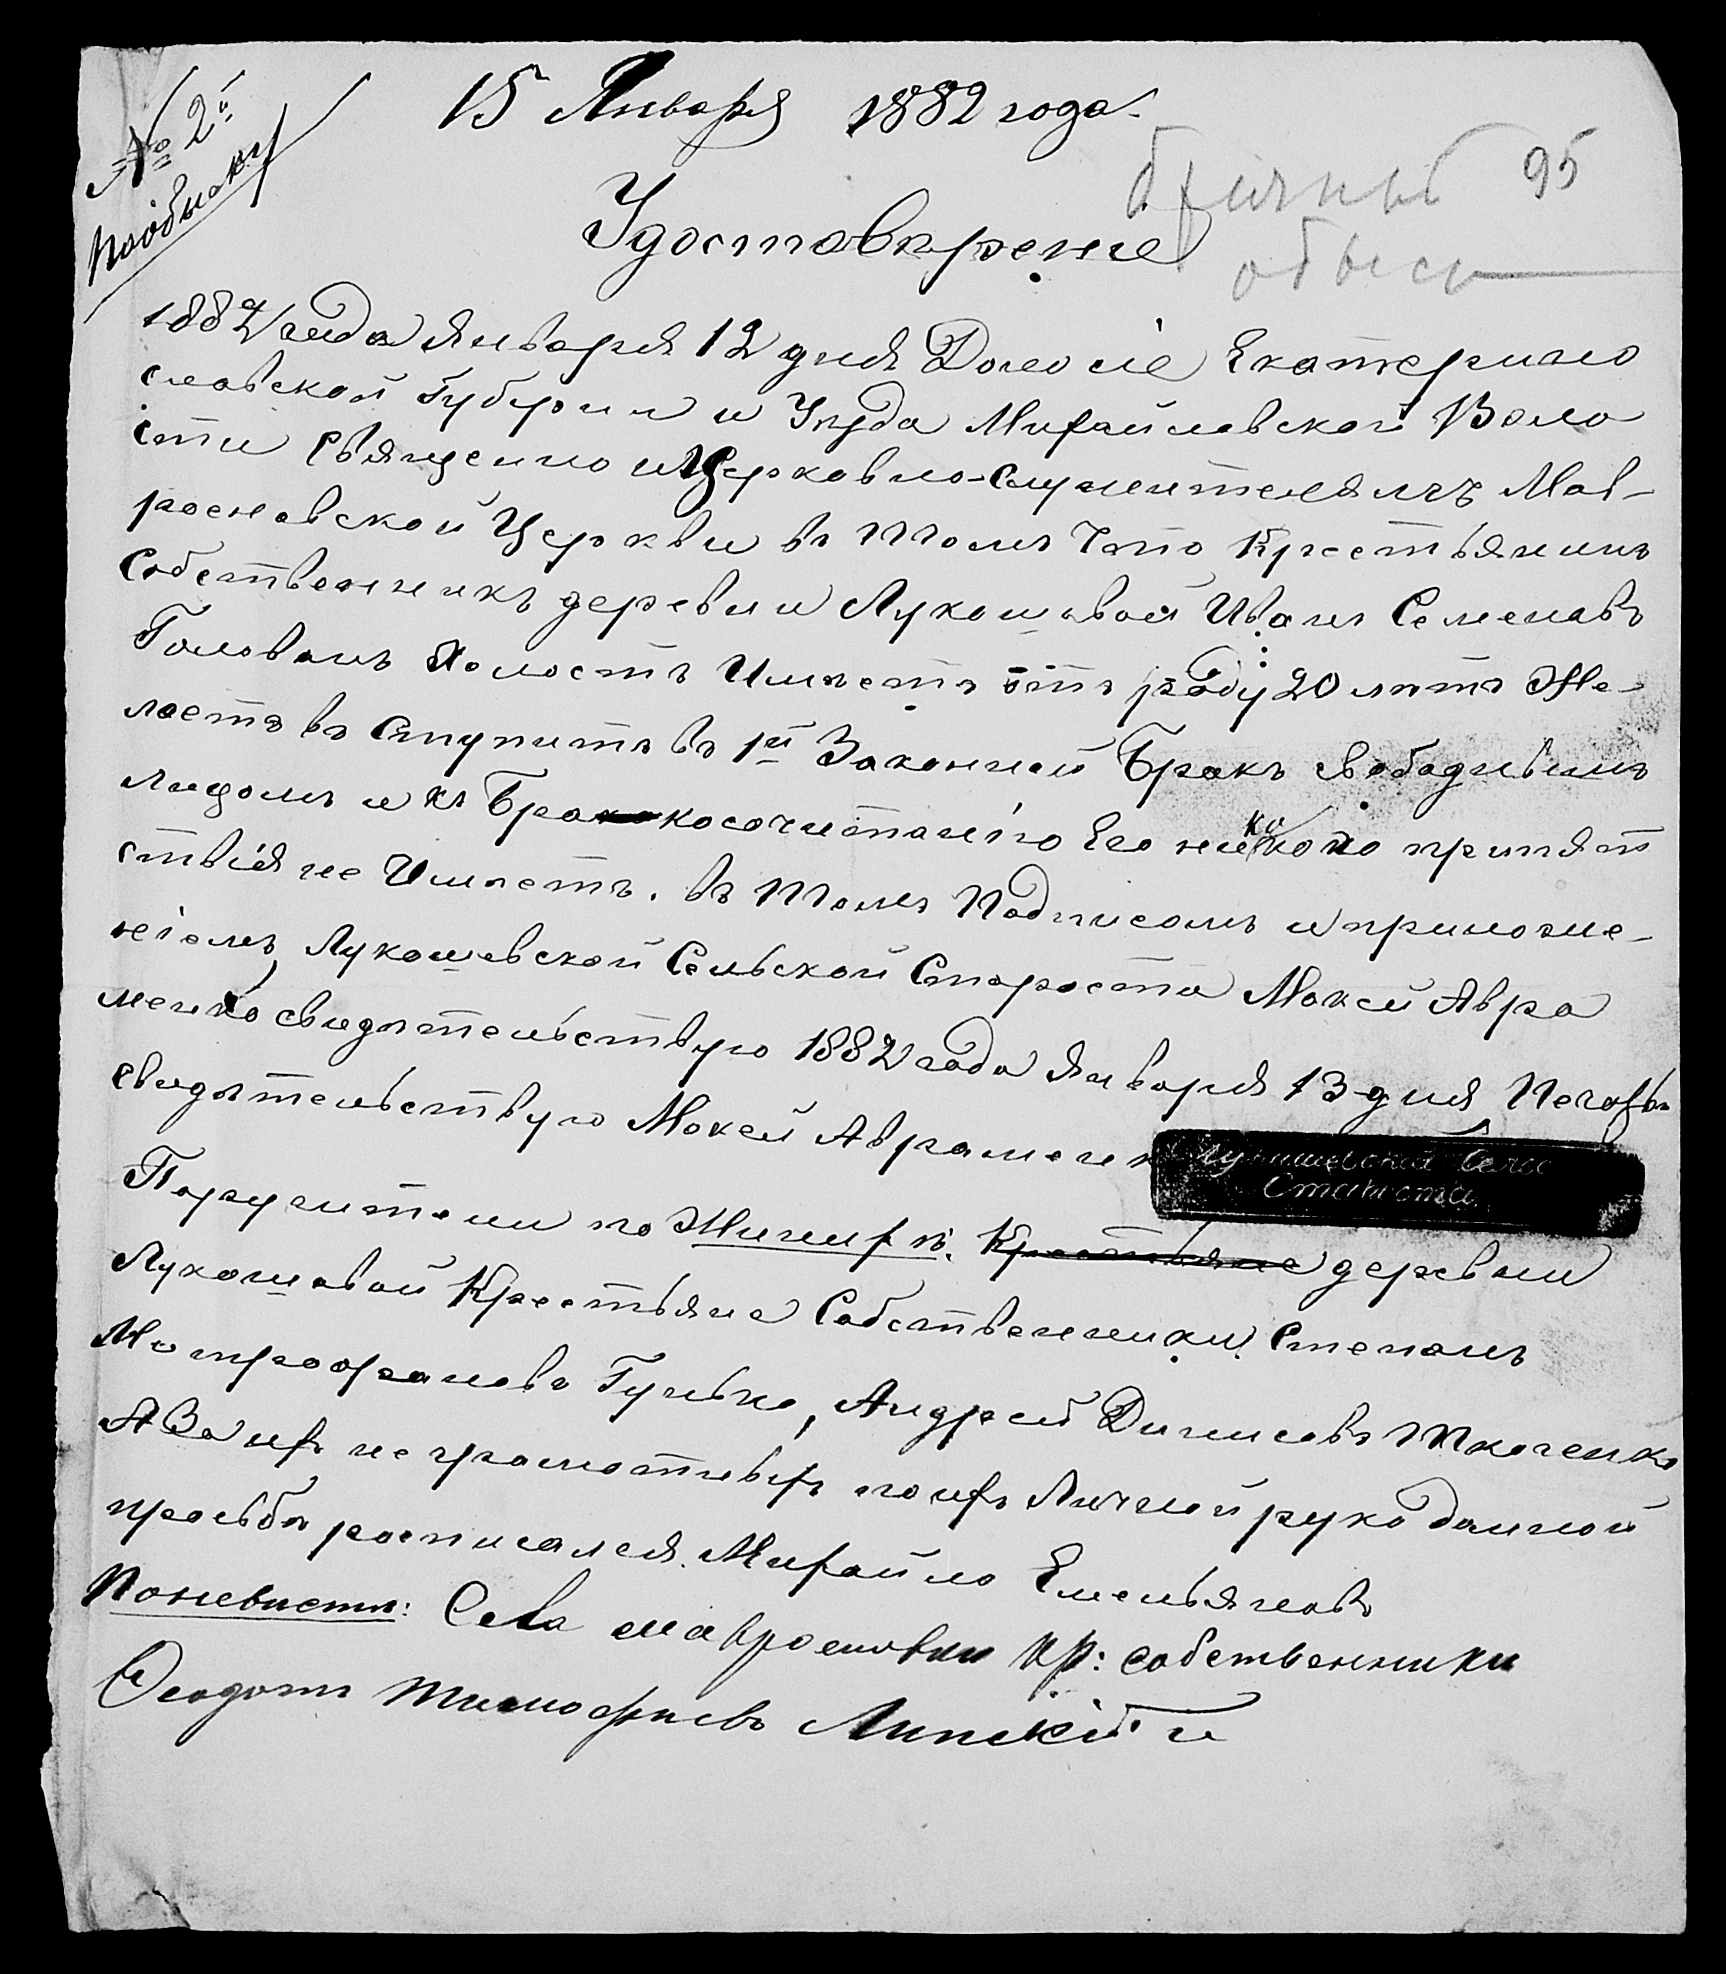 № 2й
Пообыску
15 Января 1882 года.
95
брачный
обыск
Удостоверение
1882 года Января 12 дня Дано сіе Екатерино
славской Губернии и Уѣзда Михайловской Воло
сти Священно и Церковно-Служителямъ Мав-
росновской Церкви въ Томъ Что Крестьянинъ
Собственникъ деревни Лукошовой Иванъ Семеновъ
Голованъ Холостъ Имѣетъ отъ роду 20 лѣтъ Же-
лаетъ въ Ступить въ 1й Законной Бракъ свободнымъ
лицомъ и къ Бракосочитанію Его никако препят
ствія не Имѣетъ. въ Томъ Подписомъ и приложе-
ніемъ Лукошевской Сельской Староста Мокей Авра
менко свидѣтельствую 1882 года Января 13 дня Печать
свидѣтельствую Мокей Авраменк
Лукошевской Сель
Староста
Поручители по Женихѣ. Крестьяне деревни
Лукошовой Крестьяне Собственники Степанъ
Митрофановъ Гунько, Андрей Динисовъ Ткаченко
А За ихъ неграмотныхъ по ихъ Личной рукоданной
просьбѣ росписался Михайло Емельяновъ
Поневѣстѣ: Села мавроновки кр: собственники
Ѳеодотъ Тимофѣевъ Липскій и